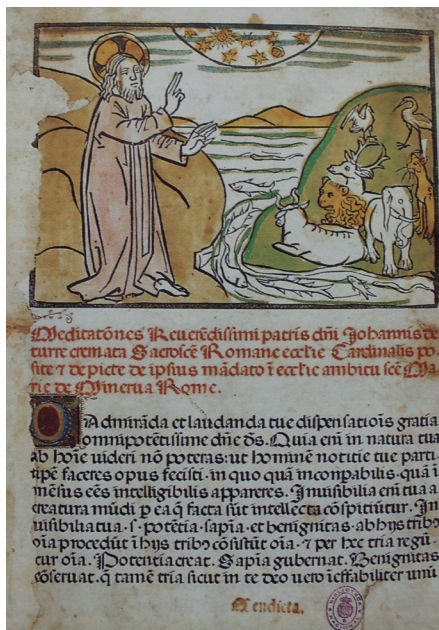 Meditatões Reuerẽdissimi patris dñi Johannis de
turre cremata Sacroscẽ Romane eccl'ie Cardinalis po
site & de picte de ipsius mãdato ĩ eccl'ie ambitu scẽ Ma
rie de Minerua Rome.
Admirãda et laudanda tue dispensatiõis gratia
omnipotẽtissime dñe ds̃. Quia em̃ in natura tua
ab hoĩe uideri nõ poteras: ut hominẽ notitie tue parti
cipẽ faceres opus fecisti. in quo quã incõpabilis. quã ĩ
mẽsus eẽs intelligibilis appareres. Inuisibilia em̃ tua a
creatura mũdi p ea q̃ facta sũt intellecta cõspitiũtur. In
uisibilia tua. s. potẽtia. sapĩa. et benignitas. ab hijs tribꝫ
oĩa procedũt ĩ hijs tribꝫ cõsistũt oĩa. & per hec tria regũ
tur oĩa. Potentia creat. Sapĩa gubernat. Benignitas
cõseruat. q̃ tamẽ tria sicut in te deo uero ĩeffabiliter unũ